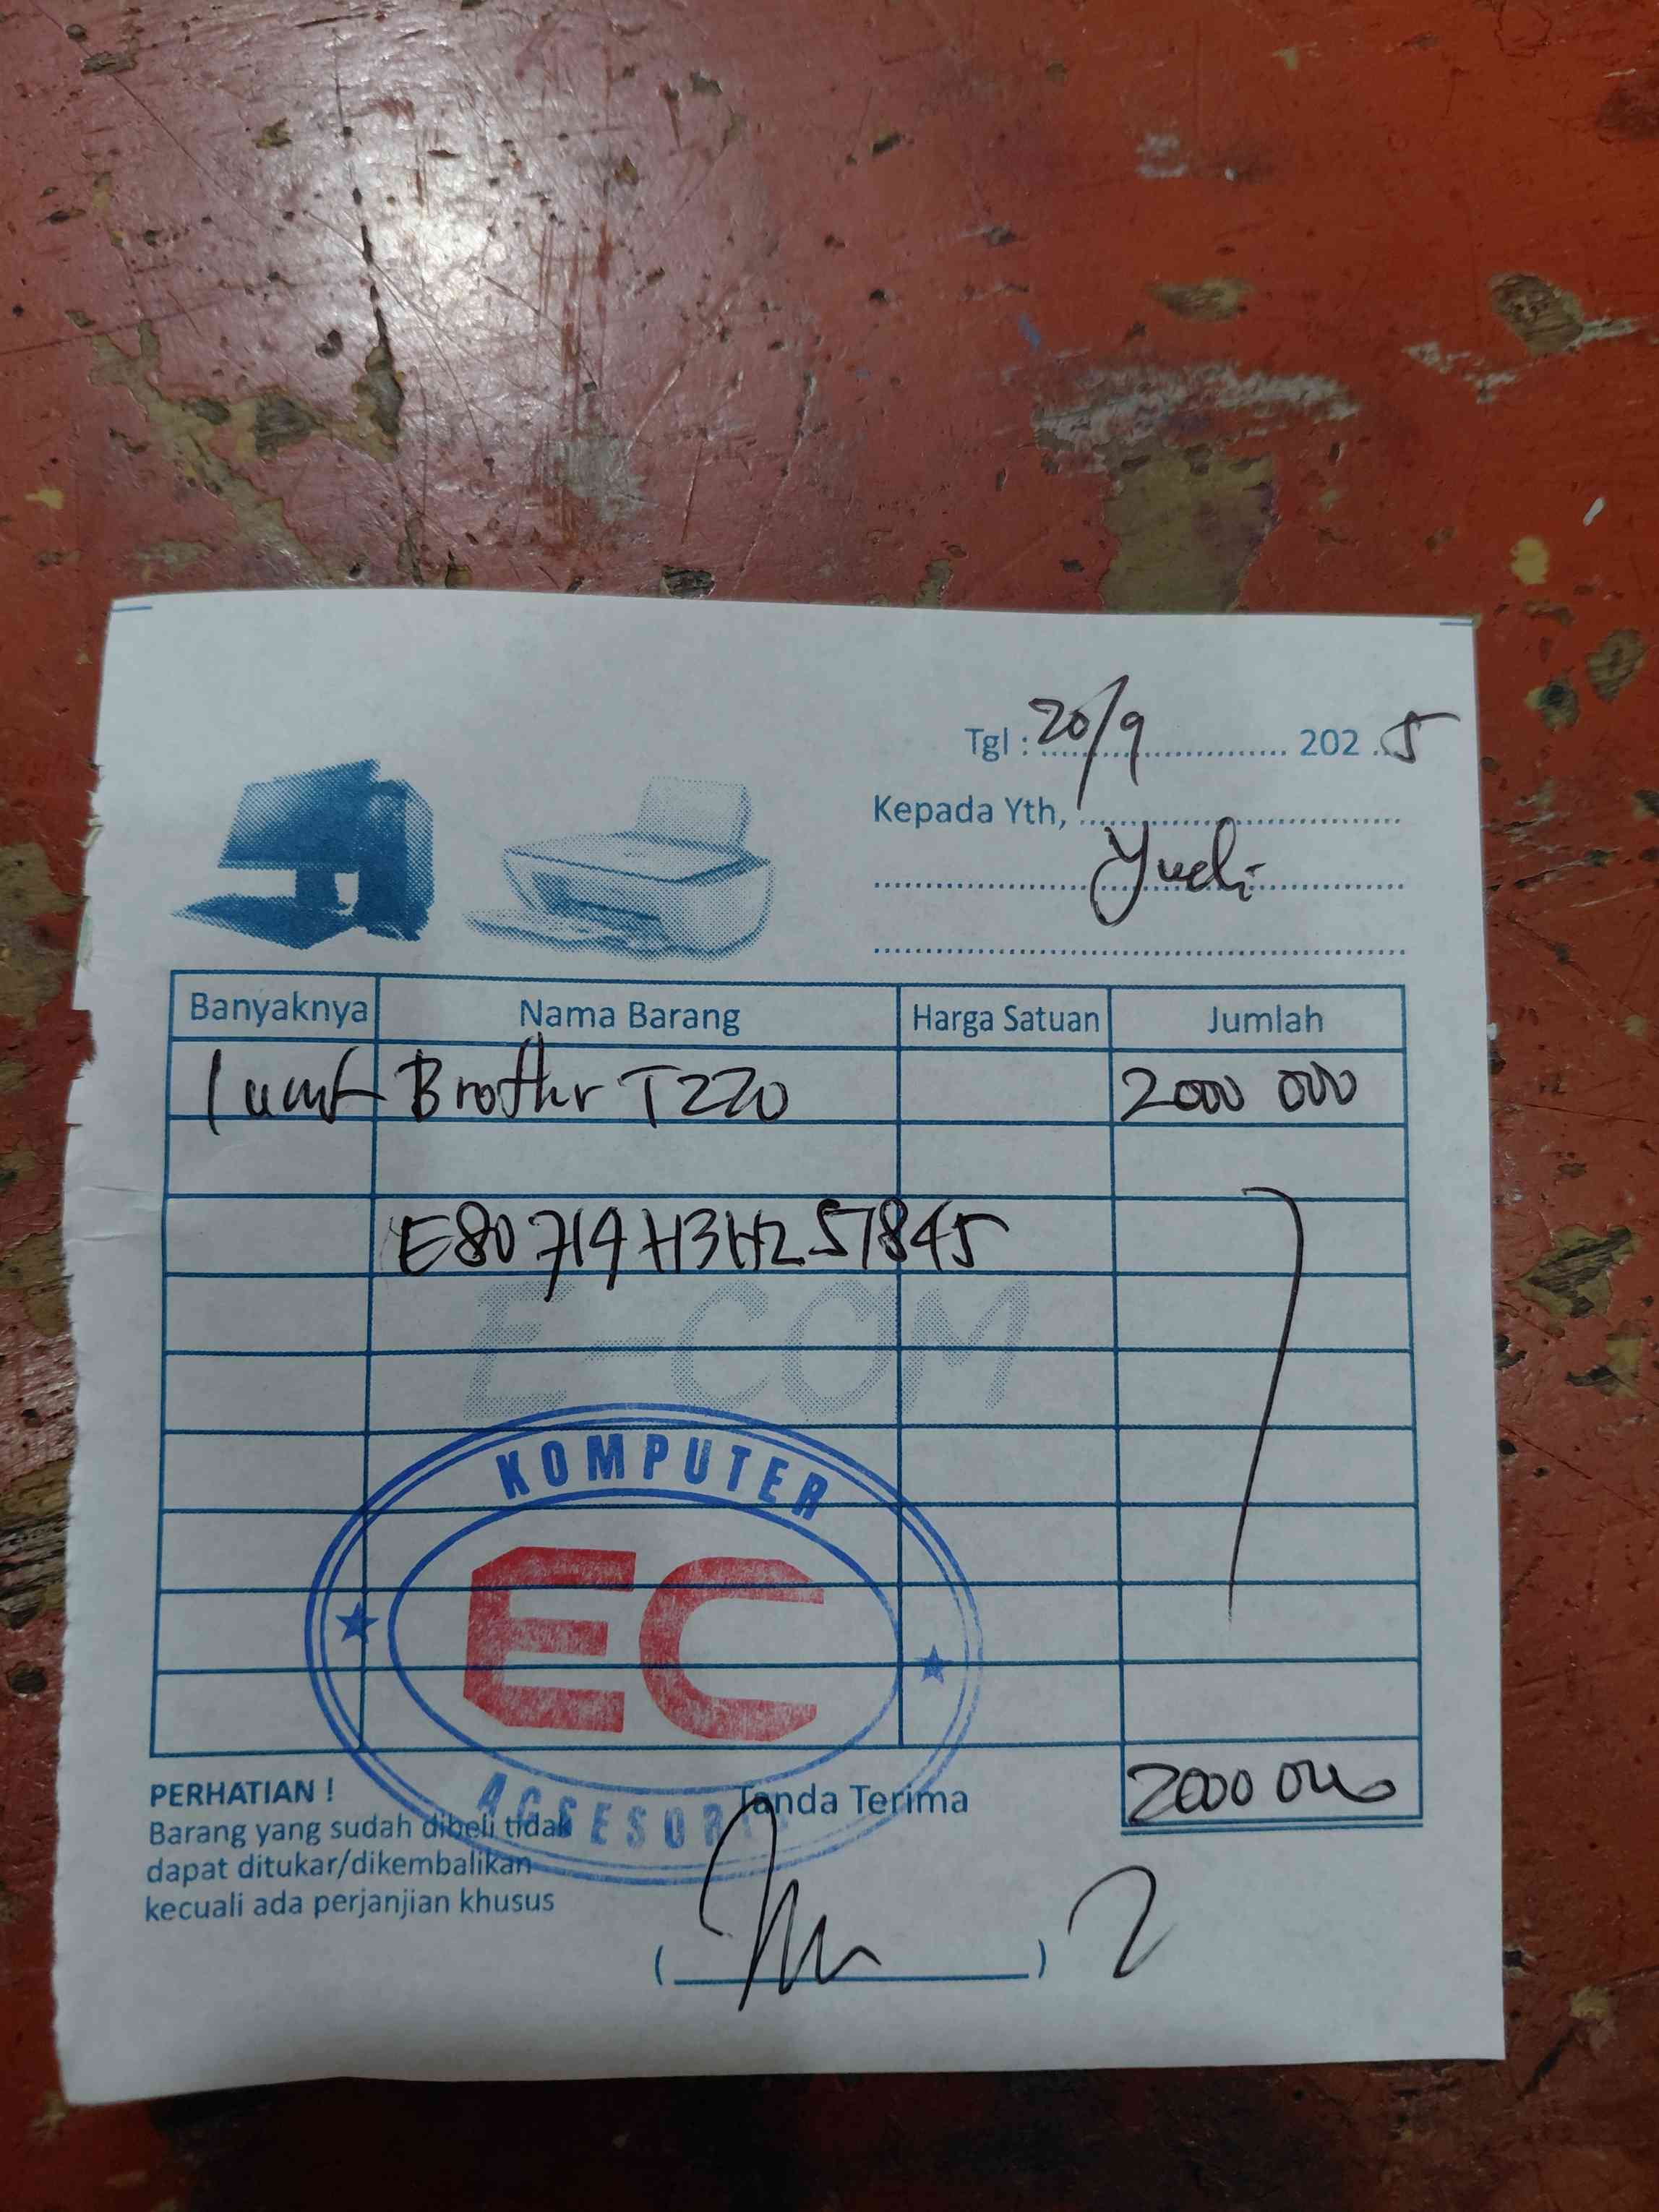 Tgl : 20/9 202 5
Kepada Yth,
Yudi
Banyaknya Nama Barang Harga Satuan Jumlah
1 unit Brother T220 2000 000
E80719H3H257845
E-COM
KOMPUTER
EC
AGSESORI
2000 000
PERHATIAN !
Barang yang sudah dibeli tidak
dapat ditukar/dikembalikan
kecuali ada perjanjian khusus
Tanda Terima
( )